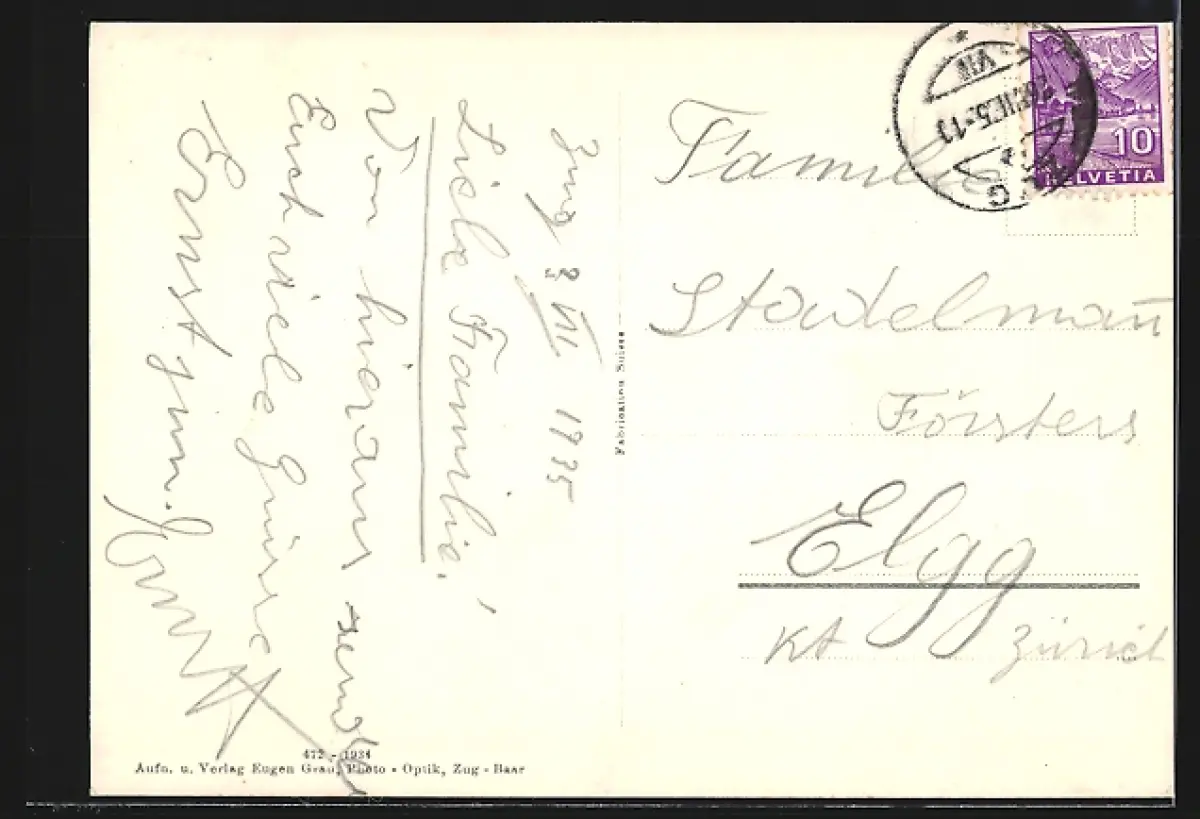 Zug 8 VII 1935
Liebe Familie!
Von hieraus sende
Euch viele Grüsse
Ernst jun.
472 - 1934
Aufn. u. Verlag Eugen Grau, Photo - Optik, Zug - Baar
Fabrication Suisse
Familie
Stadelmann
Försters
Elgg
Kt Zürich
10
HELVETIA
VII